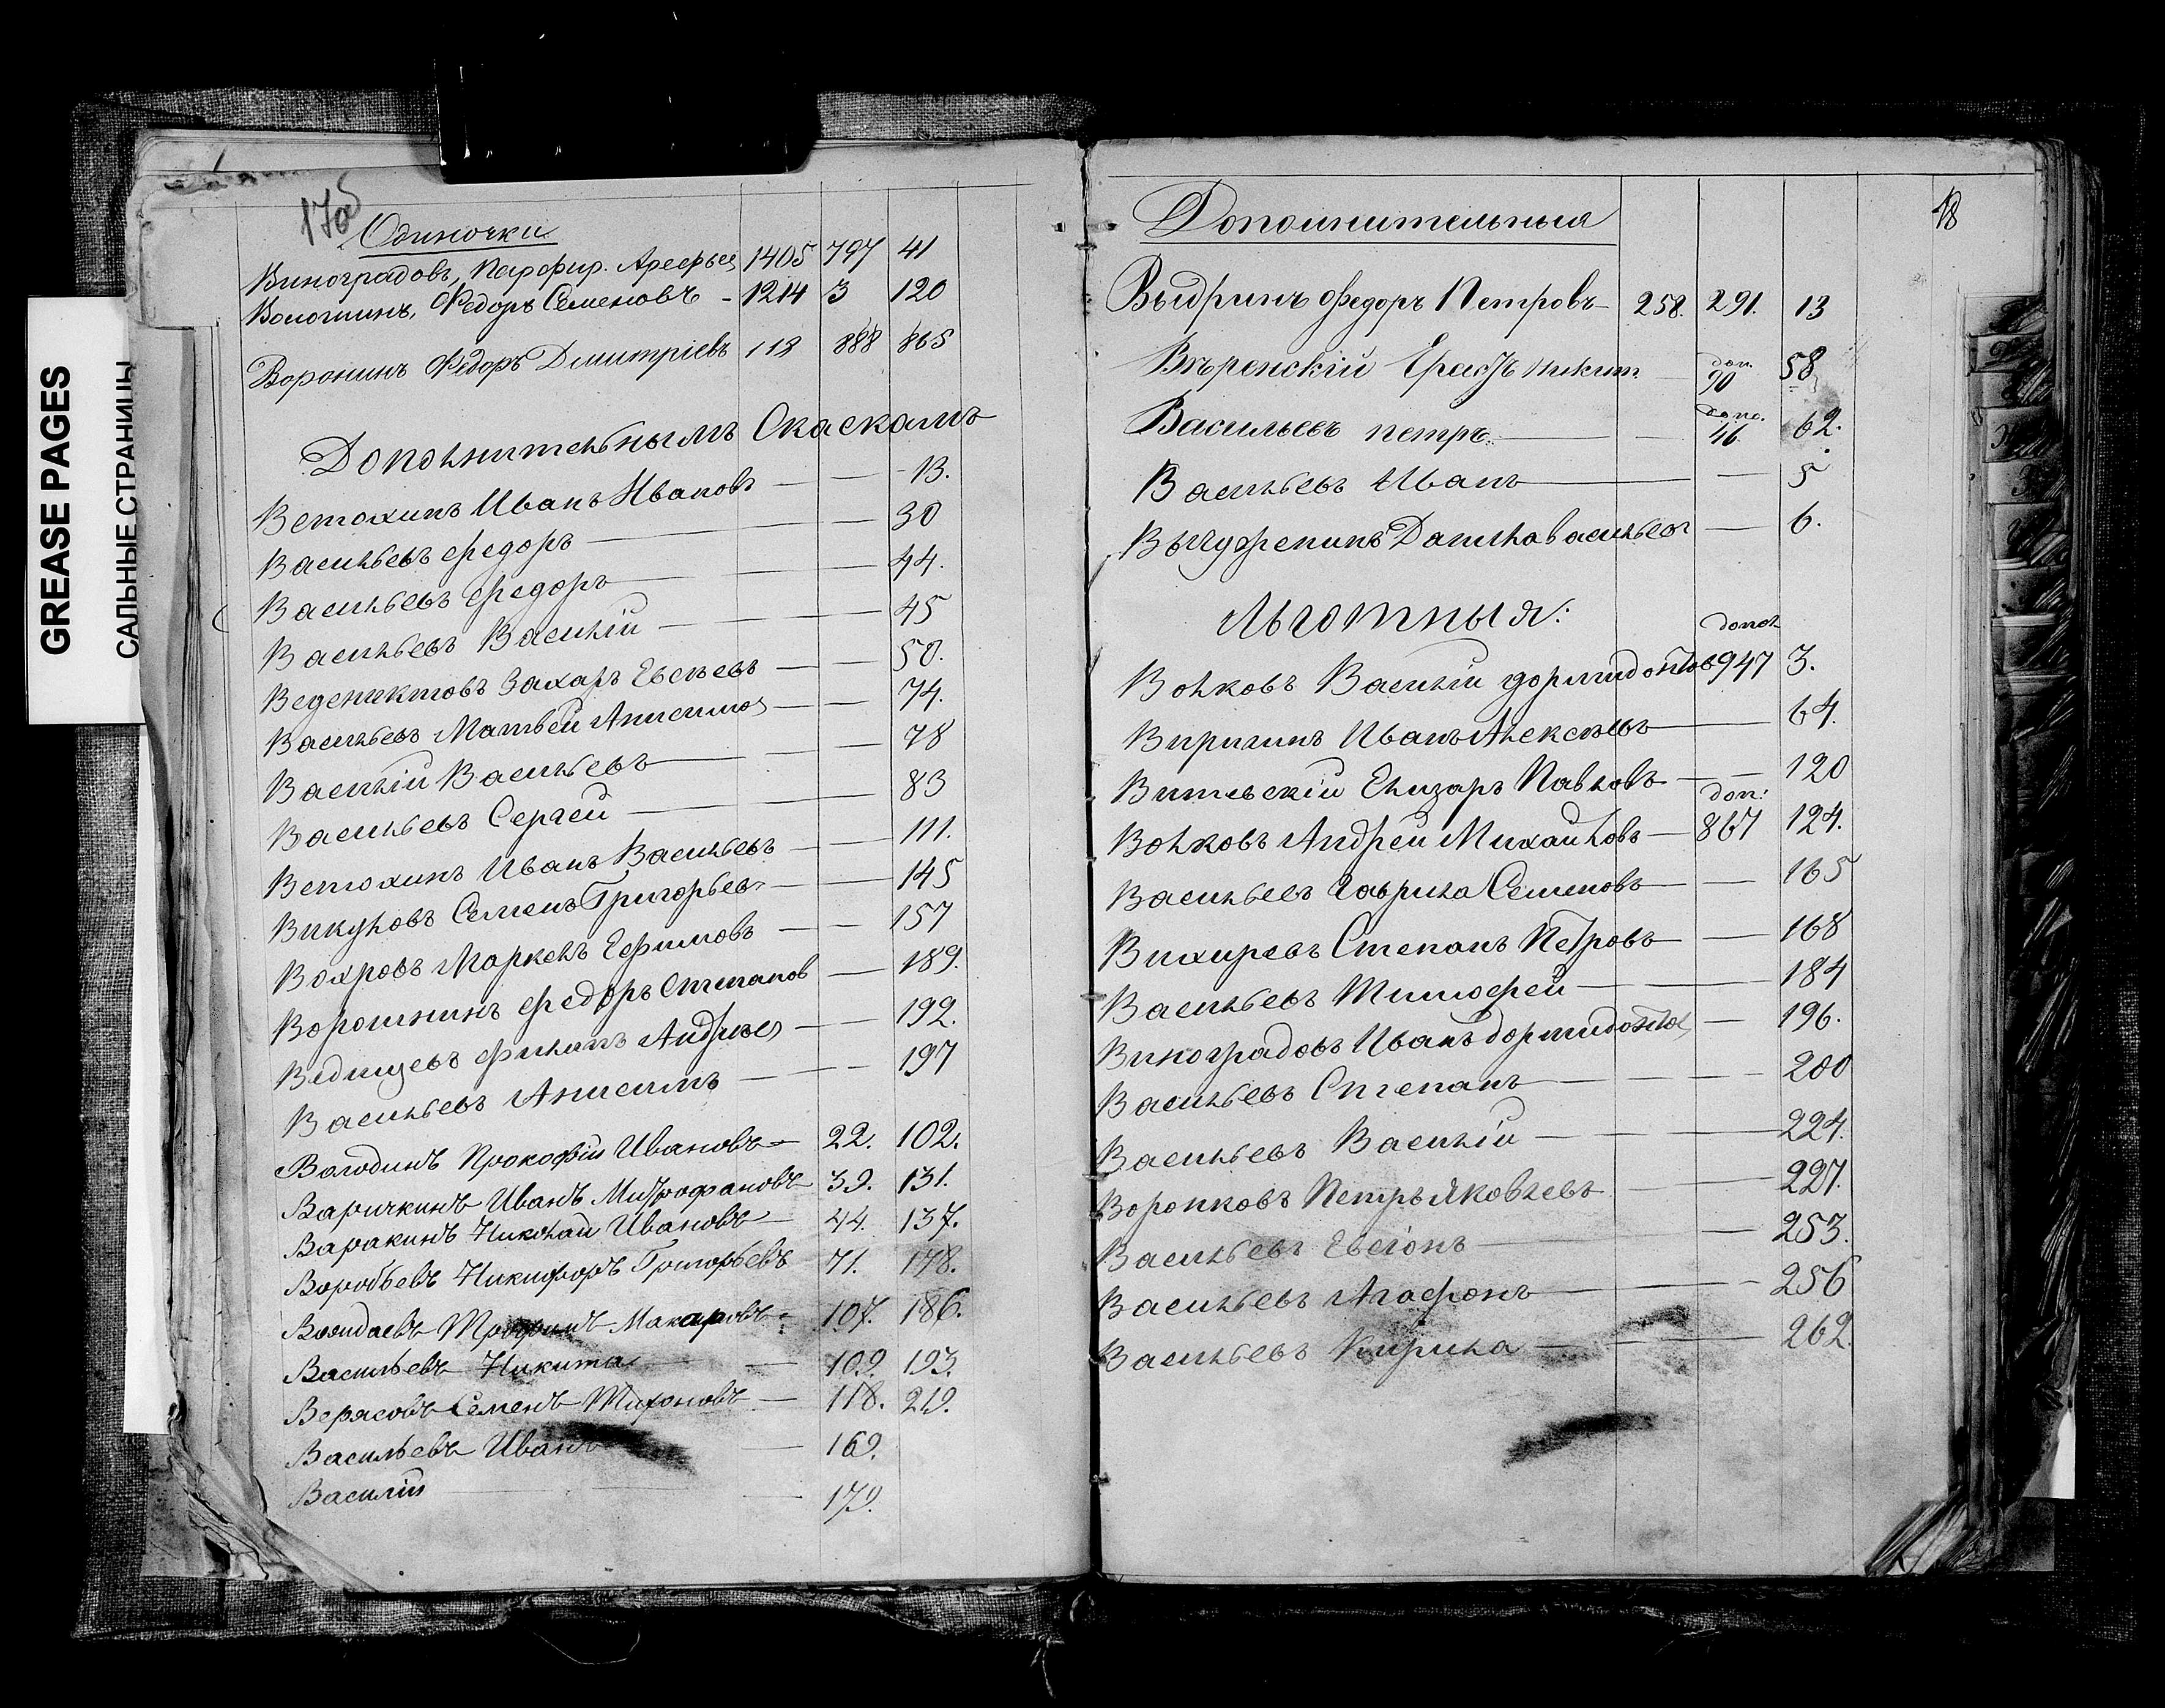 GREASE PAGES
САЛЬНЫЕ СТРАНИЦЫ
17об
Одиночки
Виноградовъ, Перфир. Арефьев 1405 797 41
Волошинъ, Федоръ Семеновъ - 1214 3 120
Воронинъ Федоръ Дмитріевъ 118 888 865
Дополнительнымъ Скаскамъ
Ветохинъ Иванъ Ивановъ — — 13.
Васильевъ федоръ — — 30
Васильевъ федоръ — — 44.
Васильевъ Василій — — 45
Ведениктовъ Захаръ Евсѣевъ — — 50.
Васильевъ Матвей Анисимов — — 74.
Василій Васильевъ — — 78
Васильевъ Сергей — — 83
Ветохинъ Иванъ Васильевъ — — 111.
Викуловъ Семенъ Григорьевъ — — 145
Вохровъ Маркелъ Ефимовъ — — 157
Ворошнинъ федоръ Степанов — 189.
Ведищевъ филипъ Андрѣев — — 192.
Васильевъ Анисимъ — — 197
Володинъ Прокофій Ивановъ — 22. 102.
Варичкинъ Иванъ Митрофановъ 39. 131.
Варакинъ Николай Ивановъ — 44. 137.
Воробьевъ Никифоръ Григорьевъ 71. 178.
Трофимъ Макаровъ 107. 186.
Васильевъ Никита — 109. 193.
Верясовъ Семенъ Тихоновъ — 118. 219.
Васильевъ Иванъ — 169.
Василій — 179.
18
Дополнительныя
Выдринъ Федоръ Петровъ 258. 291. 13
Вѣренскій Никит. — доп. 90 58
Васильевъ петръ — — допо. 46. 62.
Васильевъ Иванъ — — 5
Данила васильевъ — 6.
Льготныя:
Волковъ Василій дормидонтов допол 947 3.
Виригинъ Иванъ Алексѣевъ — 64.
Витльскій Елизаръ Павловъ — — 120
Волковъ Андрей Михайловъ — доп: 867 124.
Васильевъ Гаврила Семеновъ — — 165
Вихиревъ Степанъ Петровъ — — 168
Васильевъ Тимофей — — 184
Виноградовъ Иванъ дормидонтов — 196.
Васильевъ Степанъ — — 200
Васильевъ Василій — — 224.
Воронковъ Петръ Яковлевъ — — 227.
Васильевъ — — 253.
Васильевъ Агафонъ — — 256
Васильевъ Кирила — — 262.